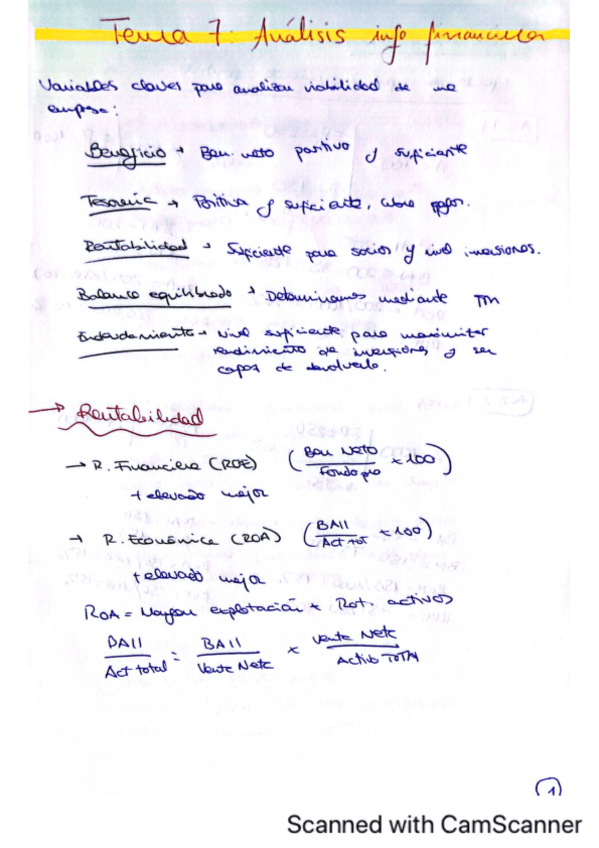 Tema 7: Análisis info financiera
Variables claves para analizar viabilidad de una
empresa:
Beneficio → Ben. neto positivo y suficiente
Tesorería → Positiva y suficiente, cubre pagos.
Rentabilidad → Suficiente para socios y nivel inversiones.
Balance equilibrado → Determinamos mediante FM
Endeudamiento → Nivel suficiente para maximizar
rendimiento de inversiones y ser
capaz de devolverlo.
→ Rentabilidad
→ R. Financiera (ROE) (Ben Neto / Fondo pro × 100)
+ elevado mejor
→ R. Económica (ROA) (BAII / Act tot × 100)
+ elevado mejor
ROA = Margen explotación × Rot. activos
BAII / Act total = BAII / Venta Neta × Venta Neta / Activo TOTAL
1
Scanned with CamScanner